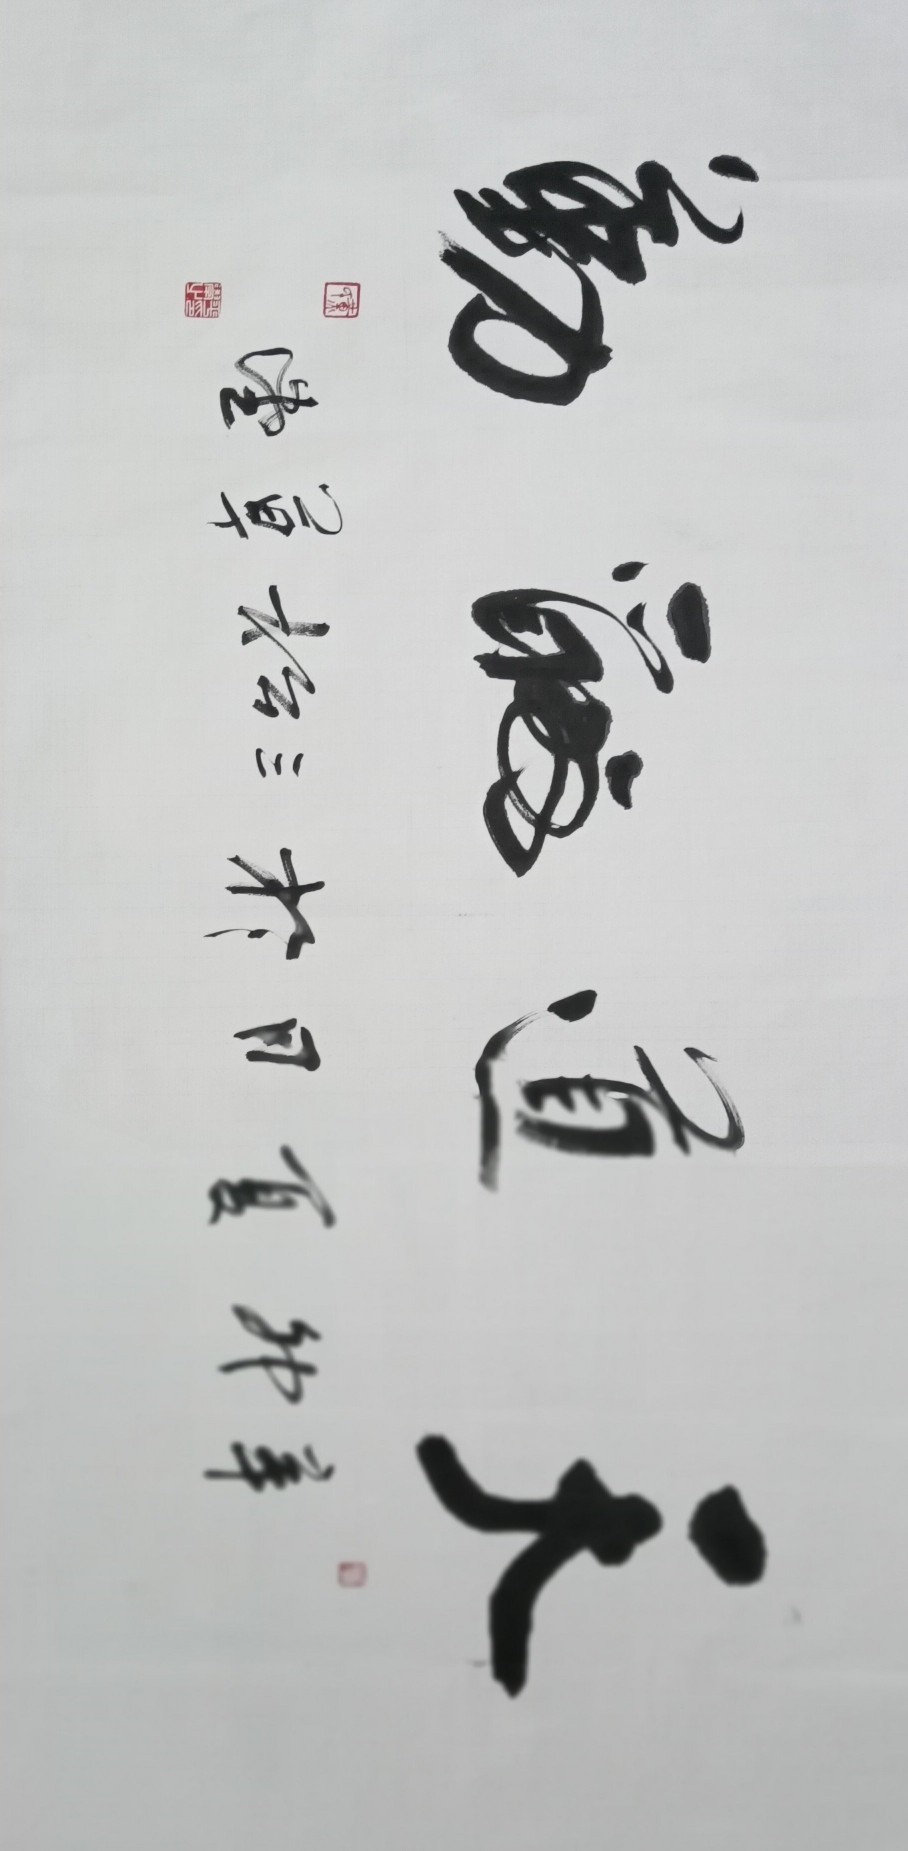 天道酬勤
辛卯夏月於三松草堂